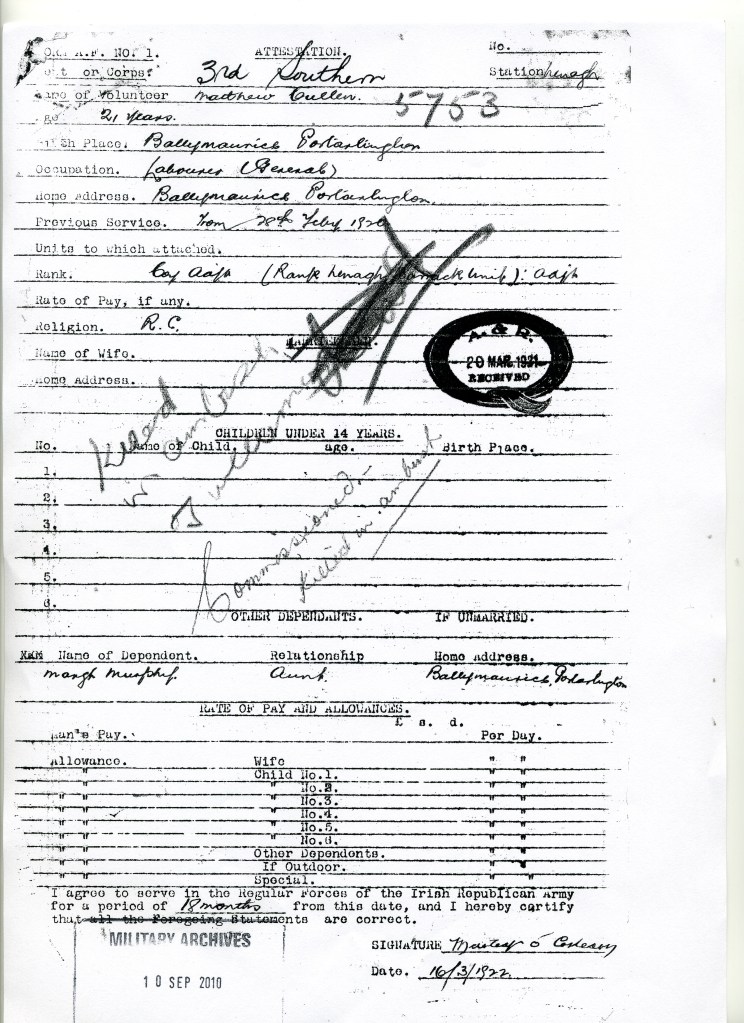 A.F. No. 1. ATTESTATION. No.
or Corps: 3rd Southern Station
of Volunteer Matthew Cullen. 5753
21 years.
Place. Ballymaurice Portarlington
Occupation. Labourer (General)
Home Address. Ballymaurice Portarlington.
Previous Service. From 28th Feby
Units to which attached.
Rank. Adjt (Rank Barrack Unit): Adjt
Rate of Pay, if any.
Religion. R.C.
Name of Wife.
Home Address.
A. & R.
20 MAR. 1921
RECEIVED
Killed
in ambush
CHILDREN UNDER 14 YEARS.
No. Name of Child. age. Birth Place.
1.
2.
3.
4.
5.
6.
Commissioned.-
Killed in ambush
OTHER DEPENDANTS. IF UNMARRIED.
Name of Dependent. Relationship Home Address.
Margt Murphy. Aunt. Ballymaurice, Portarlington
RATE OF PAY AND ALLOWANCES.
£ s. d.
Man's Pay. Per Day.
Allowance. Wife " "
" " Child No.1. " "
" " " No.2. " "
" " " No.3. " "
" " " No.4. " "
" " " No.5. " "
" " " No.6. " "
" " Other Dependents. " "
" " If Outdoor. " "
" " Special. " "
I agree to serve in the Regular Forces of the Irish Republican Army
for a period of 18 months from this date, and I hereby certify
that all the Foregoing Statements are correct.
MILITARY ARCHIVES
10 SEP 2010
SIGNATURE
Date. 16/3/1922